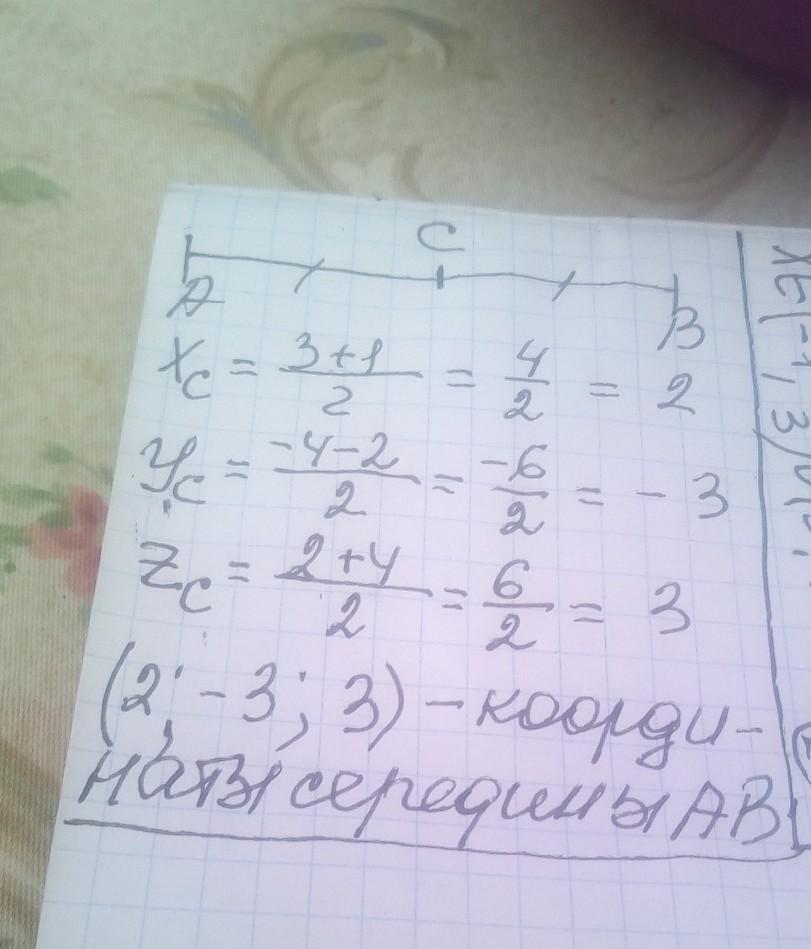 C
A
B
x_C = (3+1)/2 = 4/2 = 2
y_C = (-4-2)/2 = -6/2 = -3
z_C = (2+4)/2 = 6/2 = 3
(2; -3; 3) - коорди-
наты середины AB